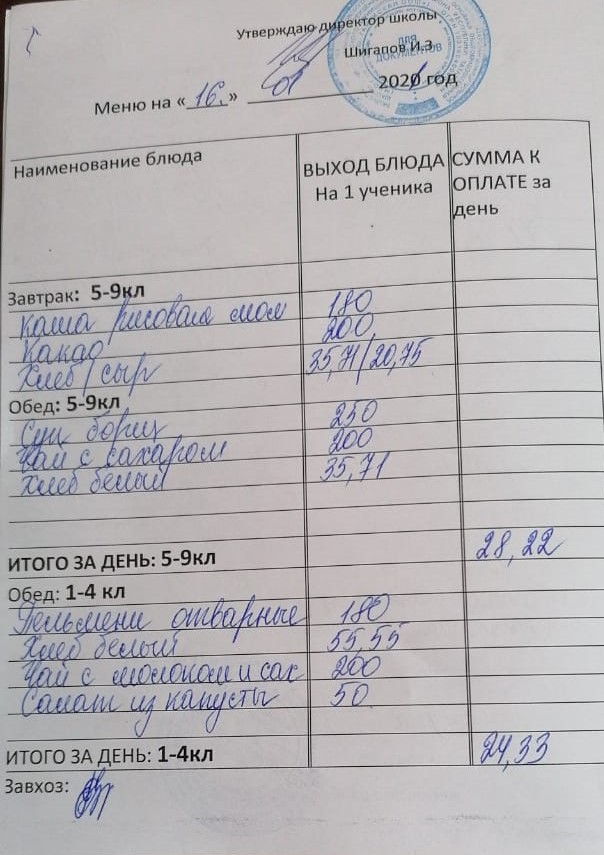 Утверждаю директор школы
Шигапов И.З
ДЛЯ ДОКУМЕНТОВ
Меню на «16.» 01 2021 год
Наименование блюда ВЫХОД БЛЮДА На 1 ученика СУММА К ОПЛАТЕ за день
Завтрак: 5-9кл
Каша рисовая мол 180
Какао 200
Хлеб/сыр 35,71/20,75
Обед: 5-9кл
Суп борщ 250
Чай с сахаром 200
Хлеб белый 35,71
ИТОГО ЗА ДЕНЬ: 5-9кл 28,22
Обед: 1-4 кл
Пельмени отварные 180
Хлеб белый 55,55
Чай с молоком и сах 200
Салат из капусты 50
ИТОГО ЗА ДЕНЬ: 1-4кл 24,33
Завхоз: